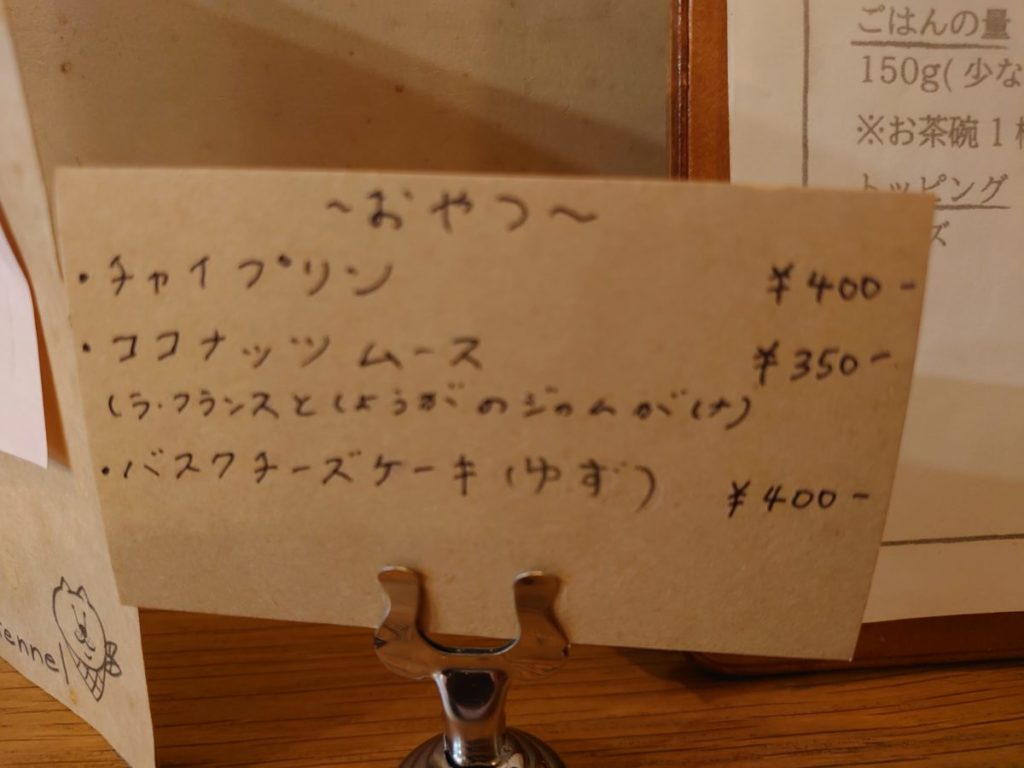 ～おやつ～
・チャイプリン ¥400-
・ココナッツムース ¥350-
(ラ・フランスとしょうがのジャムが
・バスクチーズケーキ(ゆず) ¥400-
ごはんの量
150g(少な
※お茶碗1
トッピング
ズ
enne